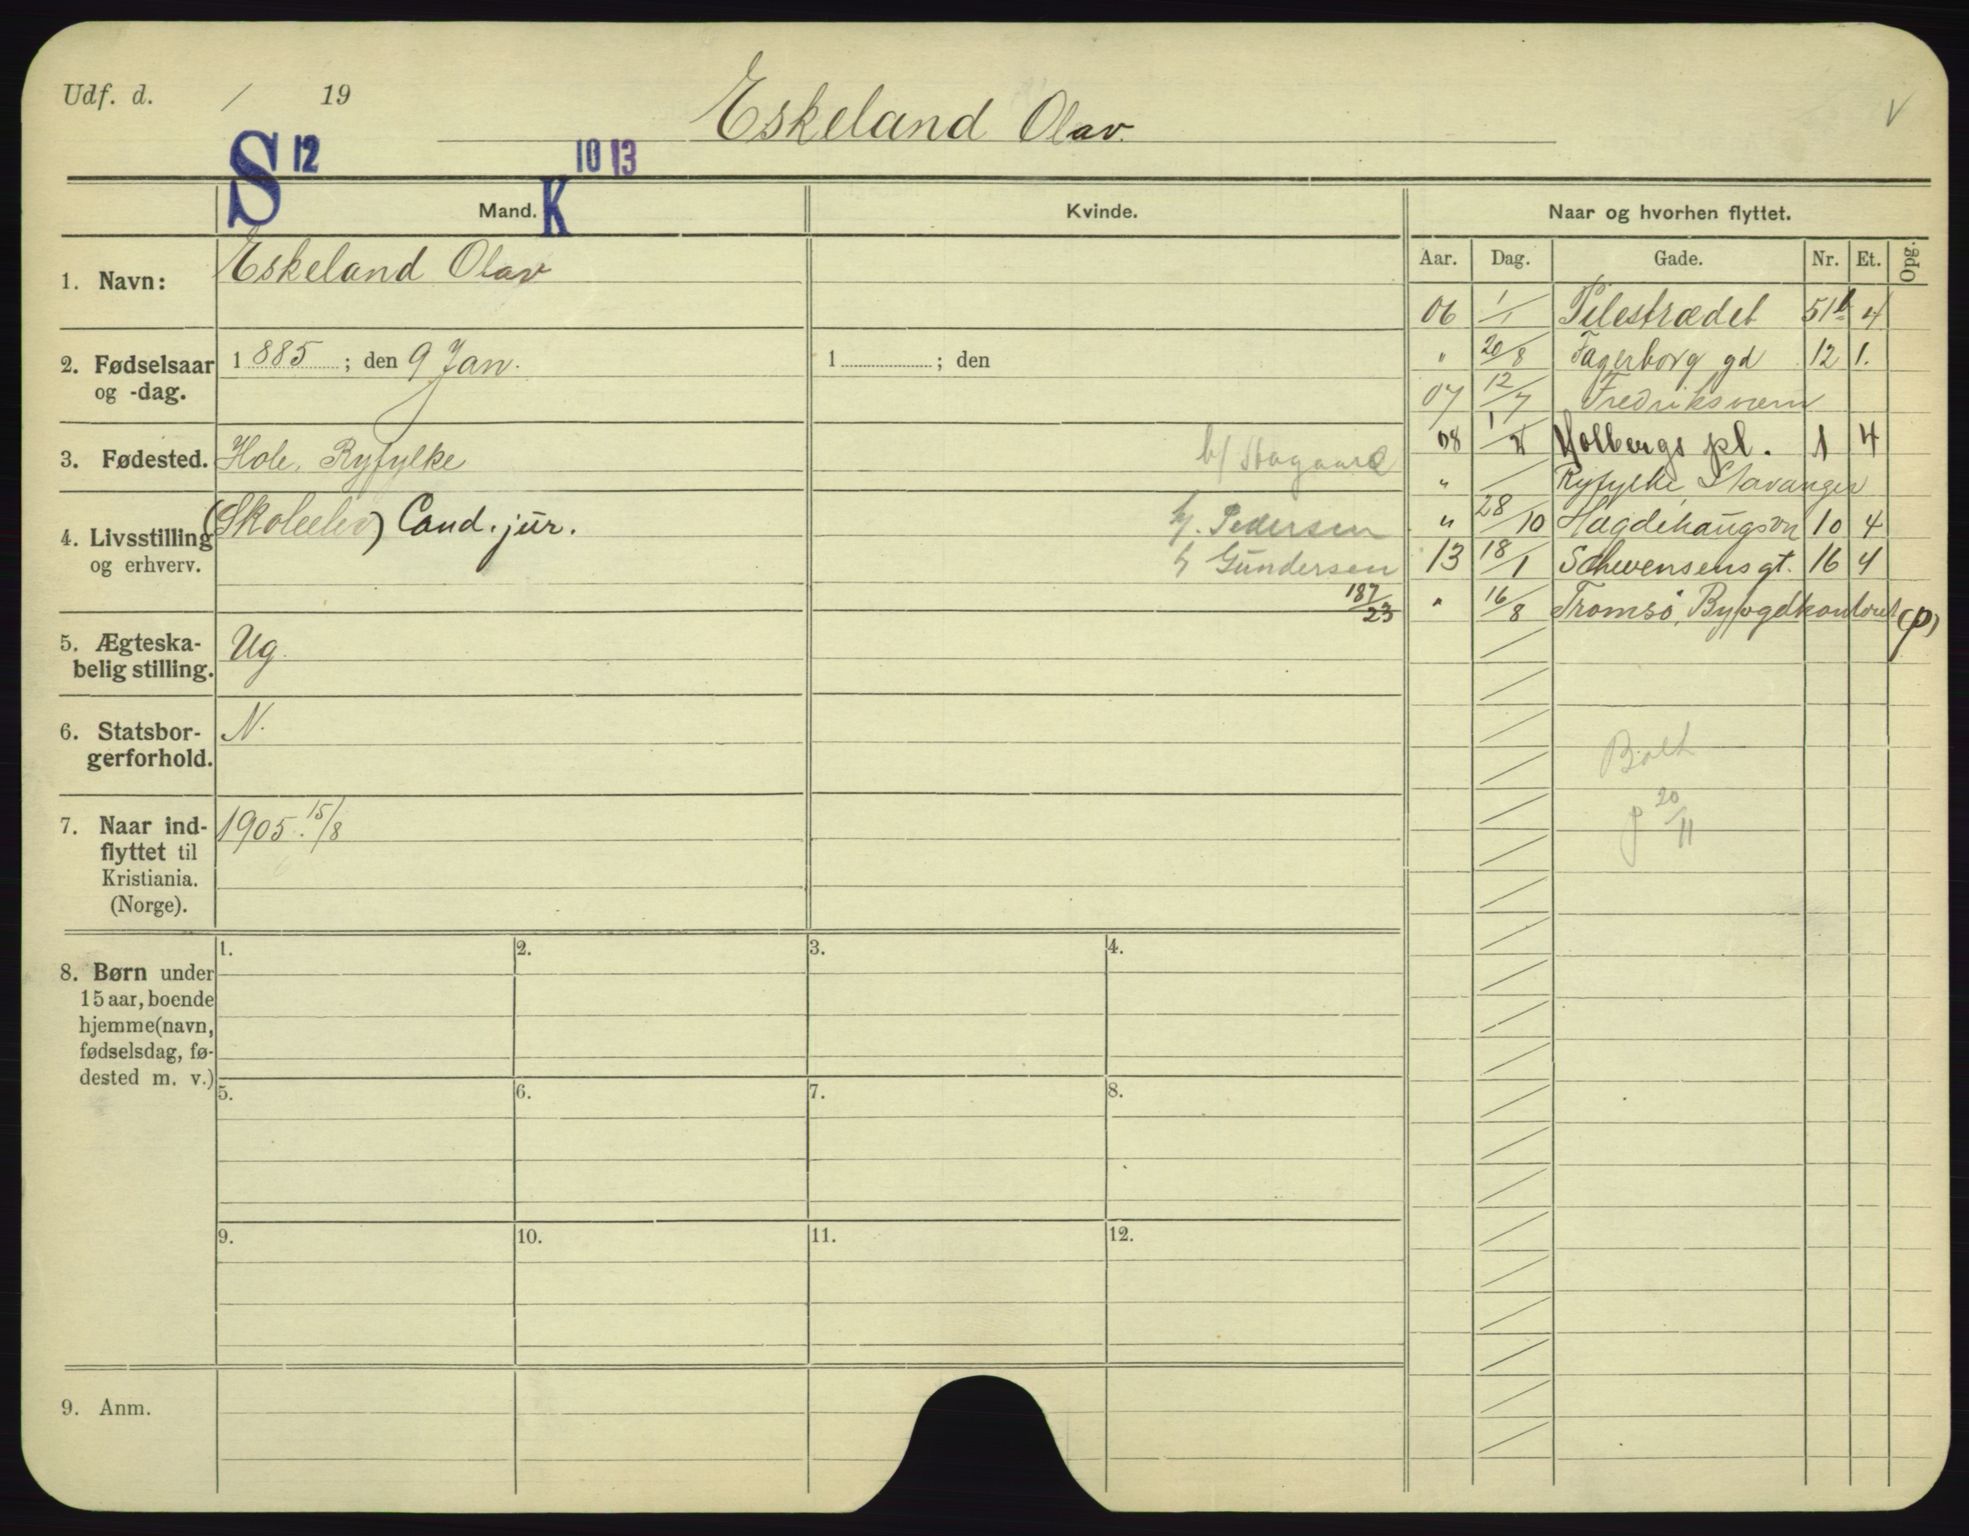 Udf. d. / 19
Eskeland Olav.
V
S 12
K 10 13
Mand.
Kvinde.
Naar og hvorhen flyttet.
Aar. Dag. Gade. Nr. Et. Opg.
1. Navn: Eskeland Olav
2. Fødselsaar og -dag. 1885; den 9 Jan.
1 ; den
3. Fødested. Hole, Ryfylke
4. Livsstilling og erhverv. (Skoleelev) Cand. jur.
5. Ægteska-
belig stilling. Ug.
6. Statsbor-
gerforhold. N.
7. Naar ind-
flyttet til
Kristiania.
(Norge). 1905. 15/8
b/
h/. Pedersen
h Gundersen
187/23
06 1/1 Pilestrædet 51b 4
" 20/8 Fagerborg gd 12 1.
07 12/7 Fredriksværn
08 Holbergs pl. 1 4
" / Ryfylke, Stavanger
" 28/10 Hægdehaugsvn 10 4
13 18/1 Schwensens gt. 16 4
" 16/8 Tromsö, Byfogdkontoret (p)
20/11
8. Børn under
15 aar, boende
hjemme (navn,
fødselsdag, fø-
dested m. v.)
1. 2. 3. 4.
5. 6. 7. 8.
9. 10. 11. 12.
9. Anm.